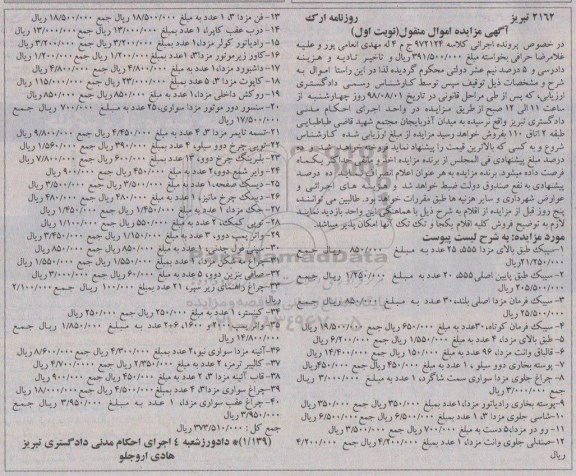 ۲۱۶۲ تبریز روزنامه ارک
آگهی مزایده اموال منقول(نوبت اول)
در خصوص پرونده اجرائی کلاسه ۹۷۲۱۲۴ ج م ۴ له مهدی نعامی پور و علیه
غلامرضا حرافی بخواسته مبلغ ۳۹۱/۵۰۰/۰۰۰ ریال و تاخیر تادیه و هزینه
دادرسی و ۵ درصد نیم عشر دولتی محکوم گردیده لذا در این راستا اموال به
شرح و مشخصات ذیل توقیف سپس توسط کارشناس رسمی دادگستری
ارزیابی، که پس از طی مراحل قانونی در تاریخ ۹۸/۰۸/۰۱ روز چهارشنبه از
ساعت ۱۱ الی ۱۲ صبح از طریق مزایده در واحد اجرای احکام مدنی
دادگستری تبریز واقع سرسیده به میدان آذربایجان مجتمع شهید قاضی طباطبایی
طبقه ۲ اتاق ۱۱۰ بفروش خواهد رسید مزایده از مبلغ ارزیابی شده کارشناس
شروع و به کسی که بالاترین قیمت را پیشنهاد نماید
درصد مبلغ پیشنهادی فی المجلس از برنده مزایده اخذ و مابقی حداکثر یکماه
فرصت داده میشود. برنده مزایده به هر عنوان اعلام انصراف نماید ده درصد
پیشنهادی به نفع صندوق دولت ضبط خواهد شد و هزینه های اجرائی و
عوارض شهرداری و سایر هزینه ها طبق مقررات خواهد بود. طالبین می توانند،
پنج روز قبل از مزایده از اقلام به شرح ذیل با هماهنگی این واحد بازدید نمایند
لازم به توضیح فروش کلیه اقلام یکجا و تک تک آنها امکان پذیر میباشد.
مورد مزایده: به شرح لیست پیوست
۱-سیبک طبق بالای مزدا ۵۵۵، ۲۵ عدد به مبلغ ۸۵۰/۰۰۰ ریال جمع
۲۱/۲۵۰/۰۰۰ریال
۲- سیبک طبق پایین اصلی۵۵۵، ۲۰ عدد به مبلغ ۱/۲۵۰/۰۰۰ ریال جمع
ریال
۳- سیبک فرمان مزدا اصلی بلند، ۳۰ عدد به مبلغ ۸۵۰/۰۰۰ ریال جمع
۲۵/۵۰۰/۰۰۰ ریال
۴- سیبک فرمان کوتاه، ۳۰عدد به مبلغ ۶۵۰/۰۰۰ ریال جمع ۱۹/۵۰۰/۰۰۰ ریال
۵- طبق بالای مزدا، ۴ عدد به مبلغ ۱/۵۵۰/۰۰۰ ریال جمع ۶/۲۰۰/۰۰۰ ریال
۶- قالپاق وانت مزدا، ۹۶ عدد به مبلغ ۱۵۰/۰۰۰ ریال جمع ۱۴/۴۰۰/۰۰۰ ریال
۷- پوسته بخاری دوو سیلو ، ۱ عدد به مبلغ ۴۵۰/۰۰۰ ریال جمع ۴۵۰/۰۰۰ریال
۸- چراغ جلوی مزدا سواری سمت شاگرد، ۱ عدد به مبلغ ۳/۰۰۰/۰۰۰ ریال
جمع ۳/۰۰۰/۰۰۰ ریال
۹-پوسته بخاری رادیاتور مزدا، ۱عدد بمبلغ ۳۵۰/۰۰۰ ریال جمع ۳۵۰/۰۰۰ ریال
۱۰-شاسی جلوی مزدا ۳، ۱عدد بمبلغ ۶/۵۰۰/۰۰۰ ریال جمع ۶/۵۰۰/۰۰۰ ریال
۱۱- رو دور مزدا، ۵ دست به مبلغ ۷۰۰/۰۰۰ ریال جمع ۳/۵۰۰/۰۰۰ ریال
۱۲-صندلی جلوی وانت مزدا، ۱ عدد بمبلغ ۴/۲۰۰/۰۰۰ ریال جمع ۴/۲۰۰/۰۰۰
ریال
۱۳- فن مزدا ۳، ۱ عدد به مبلغ ۱۸/۵۰۰/۰۰۰ ریال جمع ۱۸/۵۰۰/۰۰۰ ریال
۱۴- درب عقب کاپرا، ۱ عدد بمبلغ ۱۳/۰۰۰/۰۰۰ ریال جمع ۱۳/۰۰۰/۰۰۰ریال
۱۵- رادیاتور کولر مزدا، ۱ عدد بمبلغ ۳/۲۰۰/۰۰۰ ریال جمع ۳/۲۰۰/۰۰۰ ریال
۱۶-کاور زیرموتور مزدا۳، ۱عدد بمبلغ ۱/۲۰۰/۰۰۰ ریال جمع ۱/۲۰۰/۰۰۰ ریال
۱۷- داشبورد مزدا، ۱ عدد به مبلغ ۴/۸۰۰/۰۰۰ ریال جمع ۴/۸۰۰/۰۰۰ ریال
۱۸- کاپوت مزدا ۳، ۵ عدد به مبلغ ۲۳/۰۰۰/۰۰۰ ریال جمع ۱۱۵/۰۰۰/۰۰۰ ریال
۱۹- روکش داخلی مزدا، ۱ عدد به مبلغ ۸۵۰/۰۰۰ ریال جمع ۸۵۰/۰۰۰ ریال
۲۰- سنسور دور موتور مزدا سواری، ۲۵ عدد به مبلغ ۷۰۰/۰۰۰ ریال جمع
۱۷/۵۰۰/۰۰۰ ریال
۲۱-تسمه تایمر مزدا ۳، ۴ عدد به مبلغ ۲/۴۵۰/۰۰۰ ریال جمع ۹/۸۰۰/۰۰۰ ریال
۲۲-توپی چرخ دوو سیلو، ۴ عدد بمبلغ ۳۹۰/۰۰۰ ریال جمع ۱/۵۶۰/۰۰۰ ریال
۲۳- بلبرینگ چرخ دوو، ۱۳ عدد بمبلغ ۶۰۰/۰۰۰ ریال جمع ۷/۸۰۰/۰۰۰ ریال
۲۴- وایر شمع دوو، ۲ عدد به مبلغ ۴۵۰/۰۰۰ ریال جمع ۹۰۰/۰۰۰ ریال
۲۵- دیسک صفحه، ۱ عدد به مبلغ ۳/۵۰۰/۰۰۰ ریال جمع ۳/۵۰۰/۰۰۰ ریال
۲۶- دینگ چرخ ماتیز، ۱ عدد به مبلغ ۴۸۰/۰۰۰ ریال جمع ۴۸۰/۰۰۰ ریال
۲۷- جک مزدا، ۱ عدد به مبلغ ۱/۴۵۰/۰۰۰ ریال جمع ۱/۴۵۰/۰۰۰ ریال
۲۸- توپی کمکی، ۲ عدد به مبلغ ۵۵۰/۰۰۰ ریال جمع ۱/۱۰۰/۰۰۰ ریال
۲۹- واتر پمپ دوو، ۳ عدد به مبلغ ۱/۱۵۰/۰۰۰ ریال جمع ۳/۴۵۰/۰۰۰ ریال
ریال جمع ۸۵۰/۰۰۰ ریال
ریال جمع ۱/۵۵۰/۰۰۰ ریال
۳۲-صافی بنزین دوو، ۵ عدد به مبلغ ۶۰۰/۰۰۰ ریال جمع ۳/۰۰۰/۰۰۰ ریال
۳۳-چراغ راهنمای زیر سپر، ۲۱ عدد بمبلغ ۱۰۰/۰۰۰ ریال جمع ۲/۱۰۰/۰۰۰
ریال
۳۴- کیستر، ۱ عدد به مبلغ ۲۵۰/۰۰۰ ریال جمع ۲۵۰/۰۰۰ ریال
۳۵- واتر پمپ ۲۰۰۰ و ۱۶۰۰، ۸ عدد به مبلغ ۱/۸۵۰/۰۰۰ ریال جمع
۱۴/۸۰۰/۰۰۰ ریال
۳۶-آئینه مزدا سواری نیو، ۲ عدد بمبلغ ۴/۳۰۰/۰۰۰ ریال جمع ۸/۶۰۰/۰۰۰ ریال
۳۷- کالیپر ترمز، ۲ عدد به مبلغ ۲/۳۵۰/۰۰۰ ریال جمع ۴/۷۰۰/۰۰۰ ریال
۳۸- قاب آئینه مزدا ۳، ۲ عدد به مبلغ ۴۵۰/۰۰۰ ریال جمع ۹۰۰/۰۰۰ ریال
۳۹- چراغ سواری مزدا۳، ۴ عدد به مبلغ ۴/۵۰۰/۰۰۰ ریال جمع ۱۸/۰۰۰/۰۰۰ ریال
۴۰- چراغ عقب سواری مزدا، ۱ عدد به مبلغ ۳/۹۵۰/۰۰۰ ریال جمع
۳/۹۵۰/۰۰۰ ریال
جمع کل: ۳۷۳/۵۱۰/۰۰۰ ریال
(۱/۱۳۹)* دادورزشعبه ٤ اجرای احکام مدنی دادگستری تبریز
هادی اروجلو